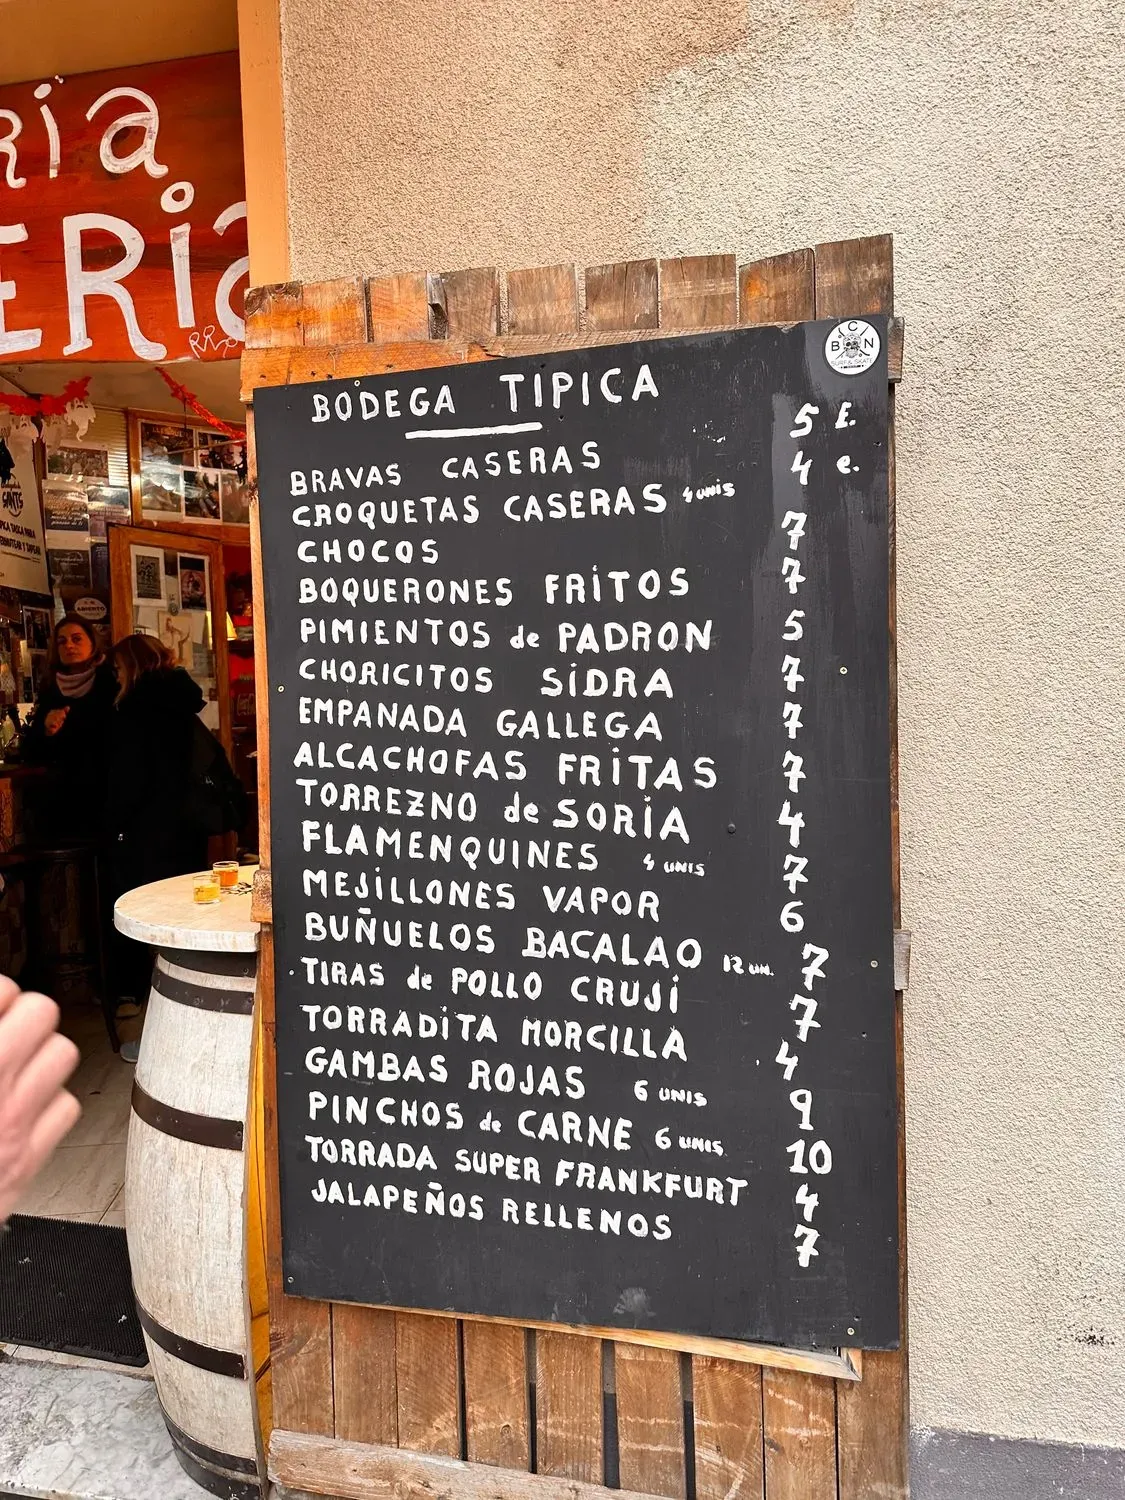 Ria
ERia
BODEGA TIPICA
BRAVAS CASERAS 5 E.
CROQUETAS CASERAS 4 UNIS 4 e.
CHOCOS 7
BOQUERONES FRiTOS 7
PIMIENTOS de PADRON 5
CHORICITOS SiDRA 7
EMPANADA GALLEGA 7
ALCACHOFAS FRiTAS 7
TORREZNO de SORiA 4
FLAMENQUINES 4 UNIS 7
MEJILLONES VAPOR 6
BUÑUELOS BACALAO 12 UN. 7
TIRAS de POLLO CRUJi 7
TORRADiTA MORCILLA 4
GAMBAS ROJAS 6 UNIS 9
PINCHOS de CARNE 6 UNIS 10
TORRADA SUPER FRANKFURT 4
JALAPEÑOS RELLENOS 7
B C N
SURF & SKATE
SANTS
ABIERTO